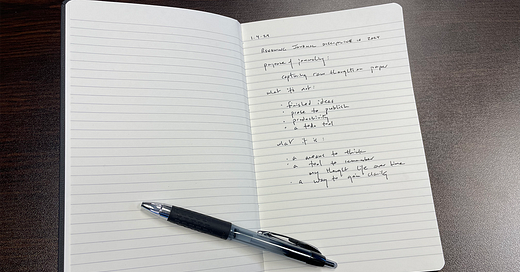 1.4.24
Journal in 2024
purpose of journaling:
capturing raw thoughts on paper
what it's not:
· finished ideas
· prose to publish
· productivity
· a todo tool
what it is:
· a means to think
· a tool to remember
my thought life over time
· a way to gain clarity